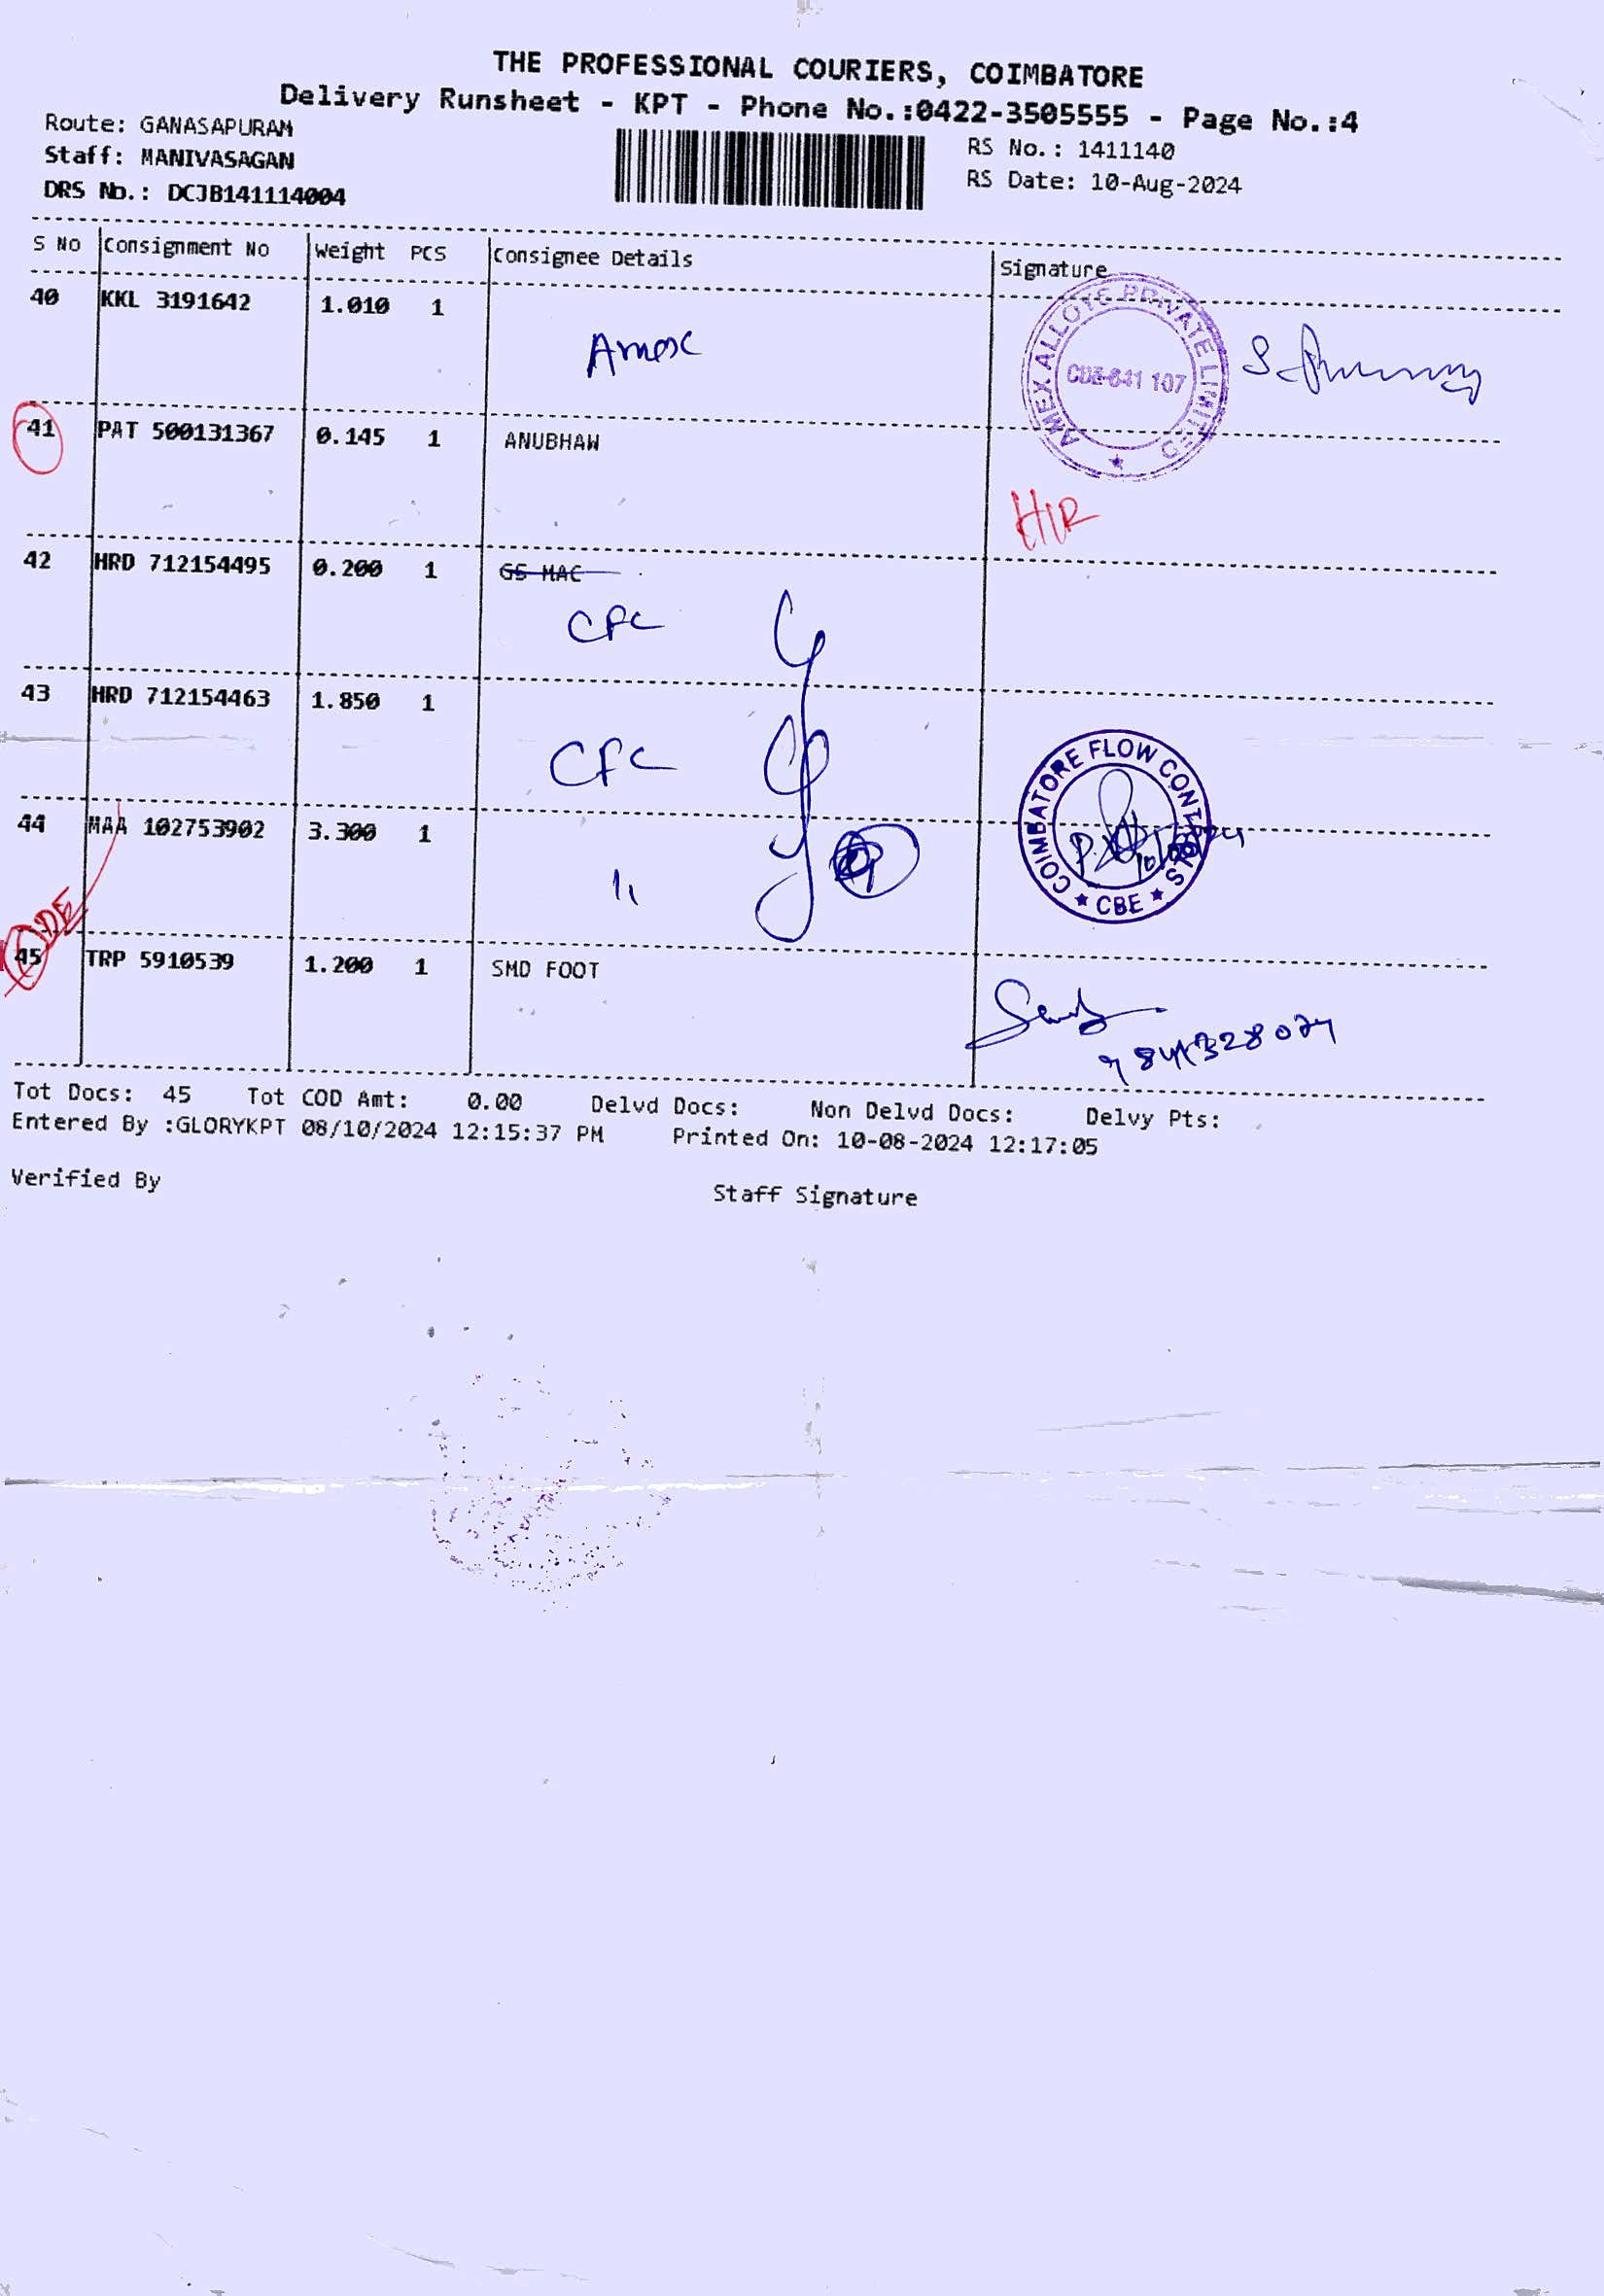 THE PROFESSIONAL COURIERS, COIMBATORE
Delivery Runsheet - KPT - Phone No.:0422-3505555 - Page No.:4
Route: GANASAPURAM
Staff: MANIVASAGAN
DRS No.: DCJB141114004
RS No.: 1411140
RS Date: 10-Aug-2024
S No Consignment No Weight PCS Consignee Details Signature
40 KKL 3191642 1.010 1
Amex
AMEX ALLOYS PRIVATE LIMITED
CBE-641 107
41 PAT 500131367 0.145 1 ANUBHAW
HIR
42 HRD 712154495 0.200 1 GS MAC
CFC
43 HRD 712154463 1.850 1
CFC
COIMBATORE FLOW CONTROLS
CBE
44 MAA 102753902 3.300 1
11
ODE
45 TRP 5910539 1.200 1 SMD FOOT
Tot Docs: 45 Tot COD Amt: 0.00 Delvd Docs: Non Delvd Docs: Delvy Pts:
Entered By :GLORYKPT 08/10/2024 12:15:37 PM Printed On: 10-08-2024 12:17:05
Verified By
Staff Signature